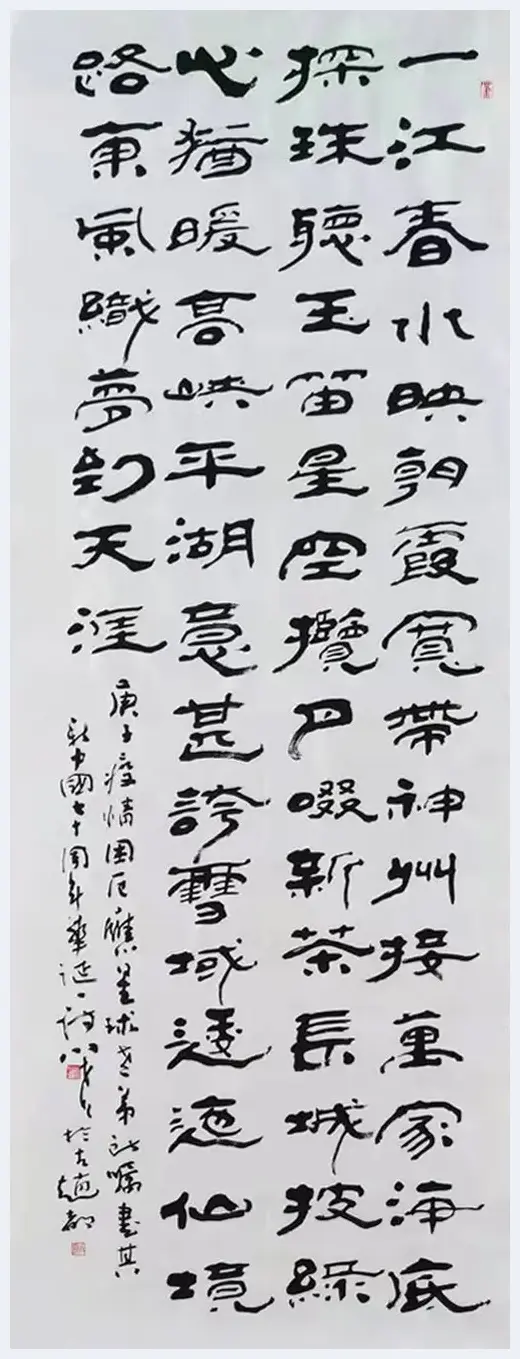 一江春水映朝霞寬帶神州接萬家海底
探珠聽玉笛星空攬月啜新茶長城披綠
心猶暖高峽平湖意甚誇雪域逶迤仙境
路東風織夢到天涯
庚子疫情困厄應星球老弟所囑書其
新中國七十周年華誕詩於古趙都